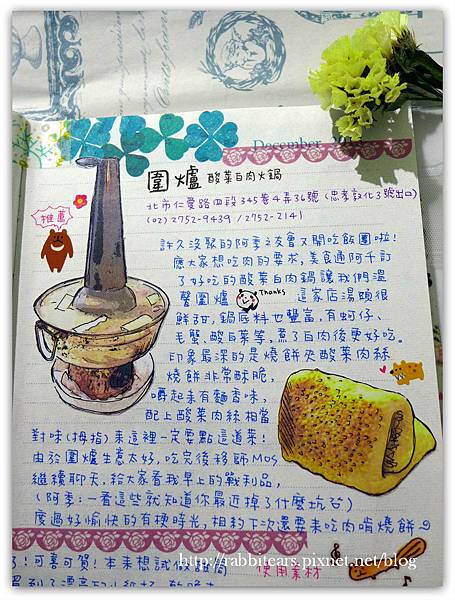 December
圍爐 酸菜白肉火鍋
北市仁愛路四段345巷4弄36號 (忠孝敦化3號出口)
(02) 2752-9439 / 2752-2141
推薦
許久沒聚的阿季之友會又開吃飯團啦!
應大家想吃肉的要求,美食通阿千訂
了好吃的酸菜白肉鍋讓我們溫
馨圍爐 Thanks 這家店湯頭很
鮮甜,鍋底料也豐富,有蚵仔、
毛蟹、酸白菜等,煮了白肉後更好吃。
印象最深的是燒餅夾酸菜肉絲
燒餅非常酥脆,
嚼起來有麵香味,
配上酸菜肉絲相當
對味(拇指)來這裡一定要點這道菜!
由於圍爐生意太好,吃完後移師MOS
繼續聊天,給大家看我早上的戰利品,
(阿季:一看這些就知道你最近掉了什麼坑
度過好愉快的有梗時光,相約下次還要來吃肉啃燒餅
http://rabbitears.pixnet.net/blog
了!可喜可賀!本來想試做
使用素材